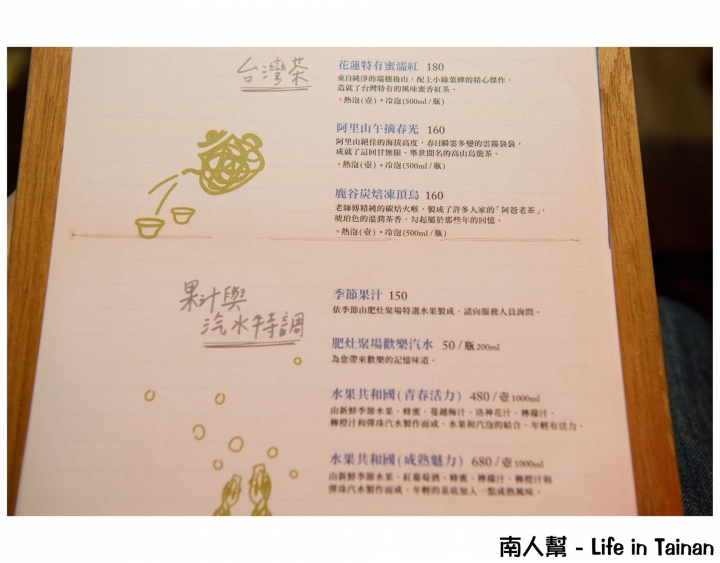 台灣茶
花蓮特有蜜濡紅 180
來自純淨的瑞穗後山，配上小綠葉蟬的精心傑作，
造就了台灣特有的風味蜜香紅茶。
•熱泡(壺) •冷泡(500ml/瓶)
阿里山午摘春光 160
阿里山絕佳的海拔高度，春日瞬姿多變的雲霧裊裊，
成就了這回甘無限、舉世聞名的高山烏龍茶。
•熱泡(壺) •冷泡(500ml/瓶)
鹿谷炭焙凍頂烏 160
老師傅精純的碳焙火喉，製成了許多人家的「阿爸老茶」，
琥珀色的溫潤茶香，勾起屬於那些年的回憶。
•熱泡(壺) •冷泡(500ml/瓶)
果汁與
汽水特調
季節果汁 150
依季節由肥灶聚場特選水果製成，請向服務人員詢問。
肥灶聚場歡樂汽水 50/瓶200ml
為您帶來歡樂的記憶味道。
水果共和國(青春活力) 480/壺1000ml
由新鮮季節水果、蜂蜜、蔓越梅汁、洛神花汁、檸檬汁、
柳橙汁和彈珠汽水製作而成，水果和汽泡的結合，年輕有活力。
水果共和國(成熟魅力) 680/壺1000ml
由新鮮季節水果、紅葡萄酒、蜂蜜、檸檬汁、柳橙汁和
彈珠汽水製作而成，年輕的基底加入一點成熟風味。
南人幫 - Life in Tainan